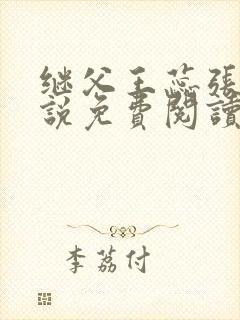 继父王蕊张
説免費閱讀
李荔付